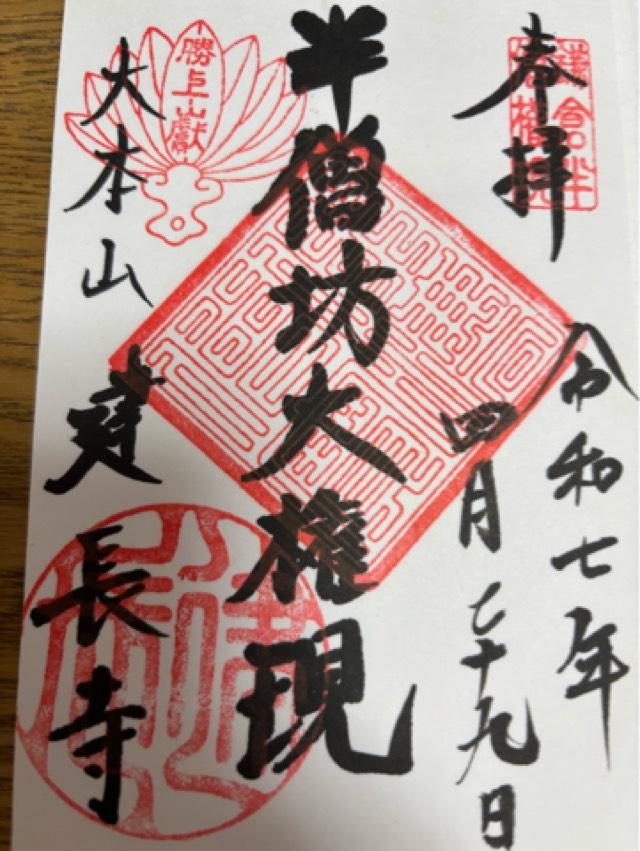 奉拝
鎌倉半
令和七年
四月二十九日
半僧坊大権現
勝上嶽
大本山
建長寺